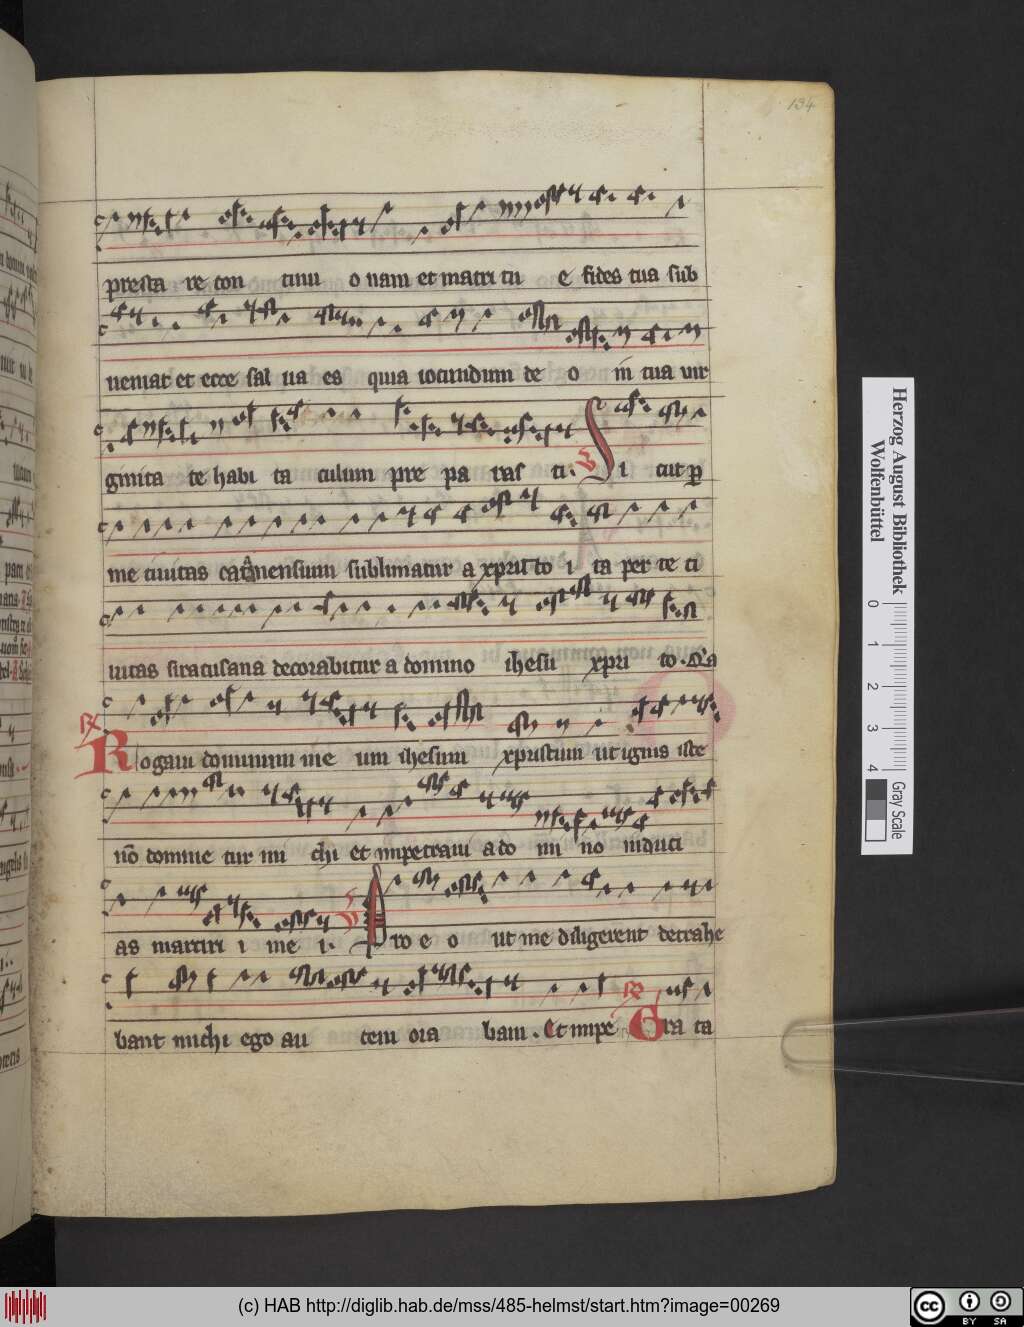 134
presta re con tinu o nam et matri tu e fides tua sub
ueniat et ecce sal ua es quia iocundum de o in tua vir
ginita te habi ta culum pre pa ras ti. V Si cut p
me ciuitas cathinensium sublimatur a xpristo i ta per te ci
uitas siracusana decorabitur a domino ihesu xpri to. Q'a
R Rogaui dominum me um ihesum xpristum ut ignis iste
no domine tur mi chi et impetraui a do mi no induci
as martiri i me i. V Pro e o ut me diligerent detrahe
bant michi ego au tem ora bam. Et impe R Gra ta
Herzog August Bibliothek
Wolfenbüttel
0 1 2 3 4
Gray Scale
(c) HAB http://diglib.hab.de/mss/485-helmst/start.htm?image=00269
cc BY SA